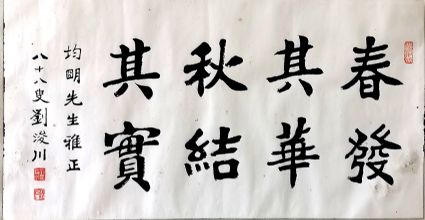 春發
其華
秋結
其實
均明先生雅正
八十八叟劉浚川